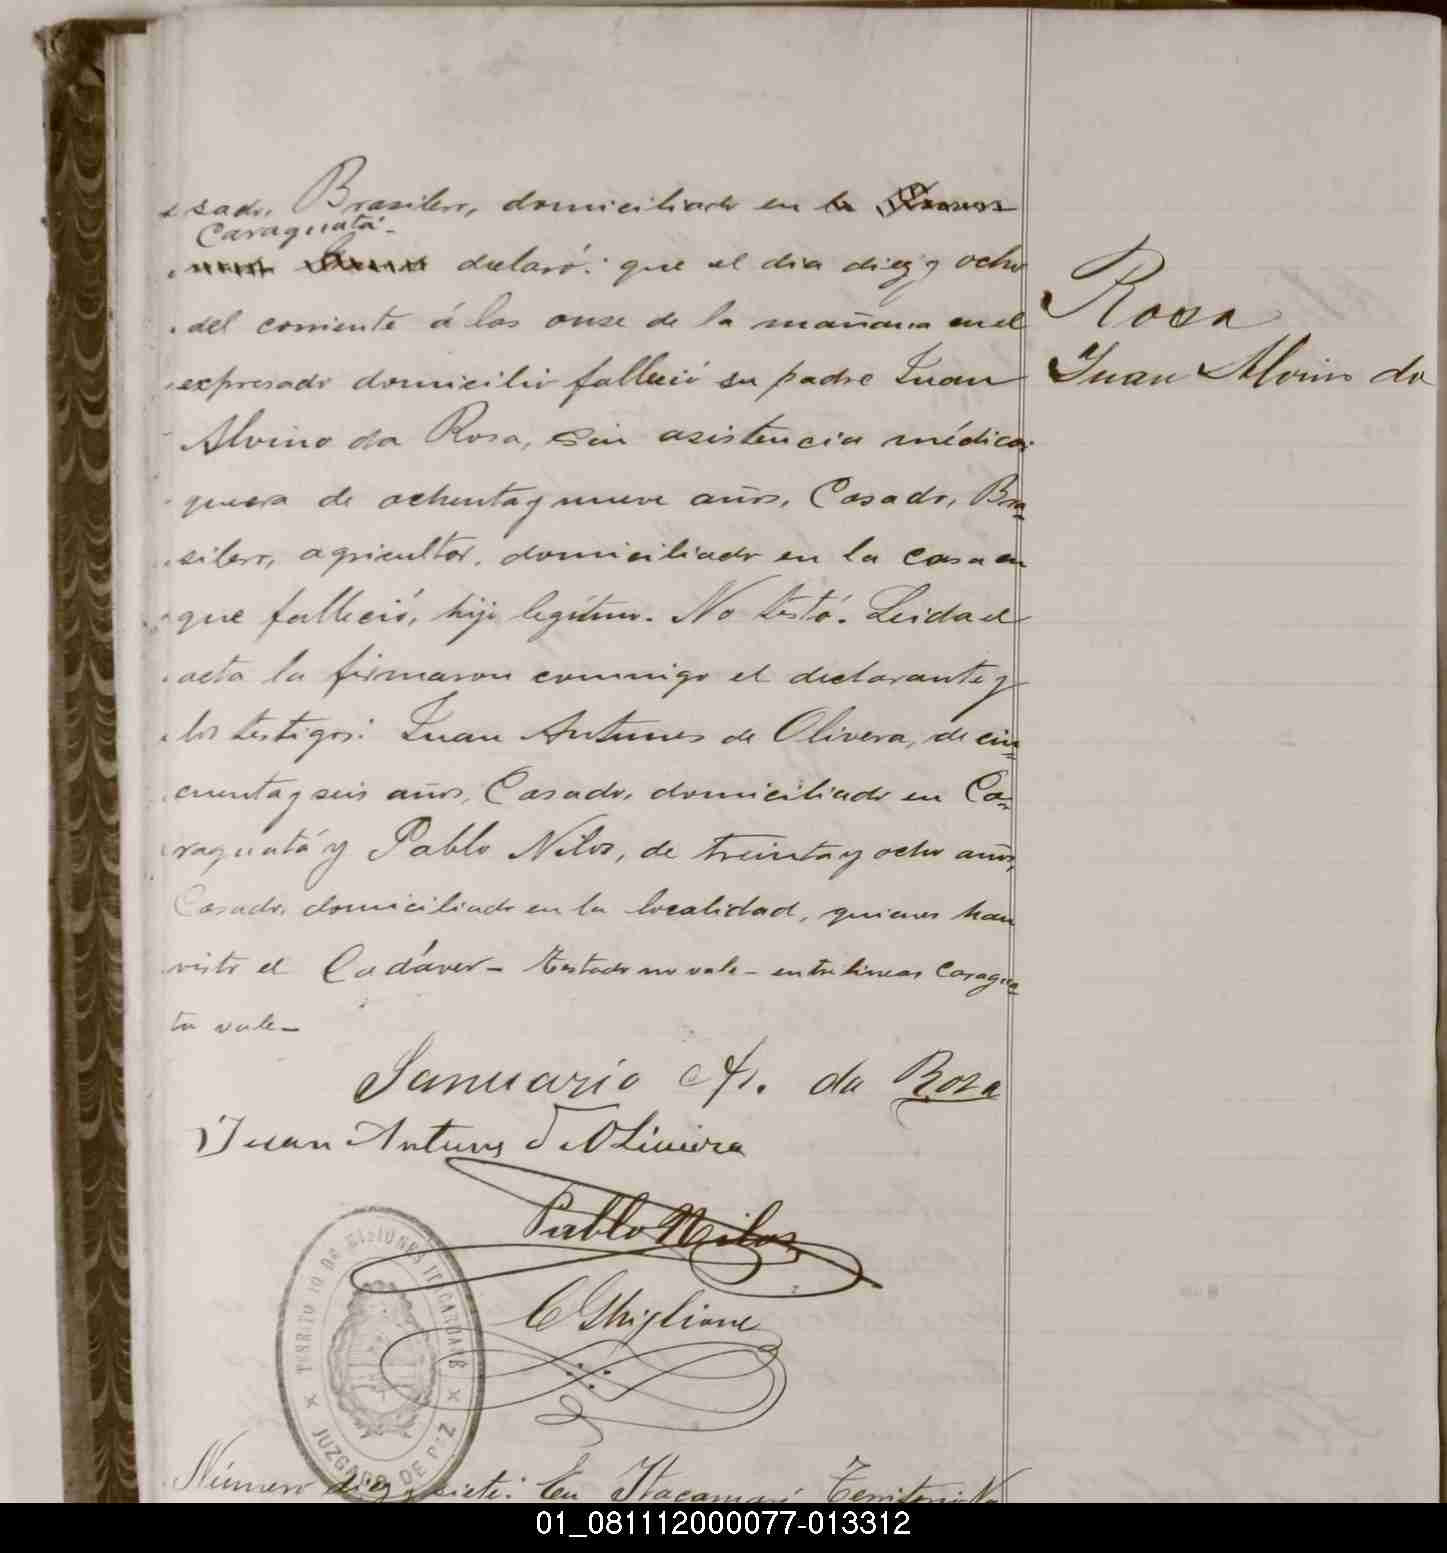 sado, Brasilero, domiciliado en la
Caraguatá-
declaró: que el dia diez y ocho
del corriente á las onse de la mañana en el
expresado domicilio falleció su padre Juan
Alvino da Rosa, sin asistencia médica
de ochenta y nueve años, Casado, Bra=
silero, agricultor, domiciliado en la casa en
que falleció, hijo legítimo. No testó. Leida el
acta la firmaron conmigo el declarante y
los testigos: Juan Antunes de Olivera, de cin=
cuenta y seis años, Casado, domiciliado en Ca=
raguatá y Pablo Nilos, de treinta y ocho años,
Casado, domiciliado en la localidad, quienes han
visto el Cadáver- Testado no vale- entre lineas Caragua=
ta vale-
Rosa
Juan Alvino da
Januario A. da Rosa
Juan Antunes d Oliveira
Pablo Nilos
C Ghiglione
TERRITORIO DE MISIONES ITACARUARÉ
JUZGADO DE PAZ
Número diez y siete: En Itacaruaré Territorio Na
01_081112000077-013312